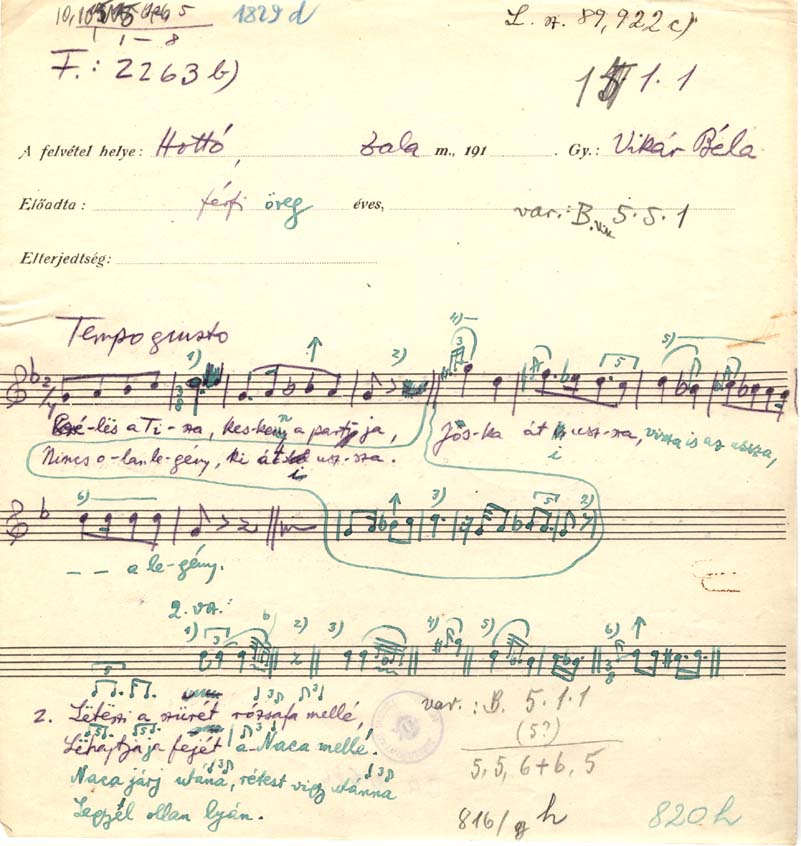 1829 d
L. sz. 89,922 c)
1 – 8
F.: 2263 b)
1.1
A felvétel helye: Hottó, Zala m., 191 . Gy.: Vikár Béla
Előadta: férfi öreg éves,
var.: B. 5.5.1
Elterjedtség:
Tempo giusto
1) 2) 4) 3 5 5)
-lës a Ti-sza, keskeny a partja,
Jóska át usz-sza, vissza is az ussza,
Nincs o-lan le-gény, ki át i usz-sza.
6) 3) 5 2)
— — a le-gény.
2. vsz.:
1) 3 6 2) 3) 4) 5) 6)
5
2. Letëszi a szürét rózsafa mellé,
Lëhajtja fejét a Naca mellé.
Naca járj utána, rétest vigy utánna
Legyél ollan lyán.
var.: B. 5.1.1
(5?)
5, 5, 6+6, 5
816/g h
820 h